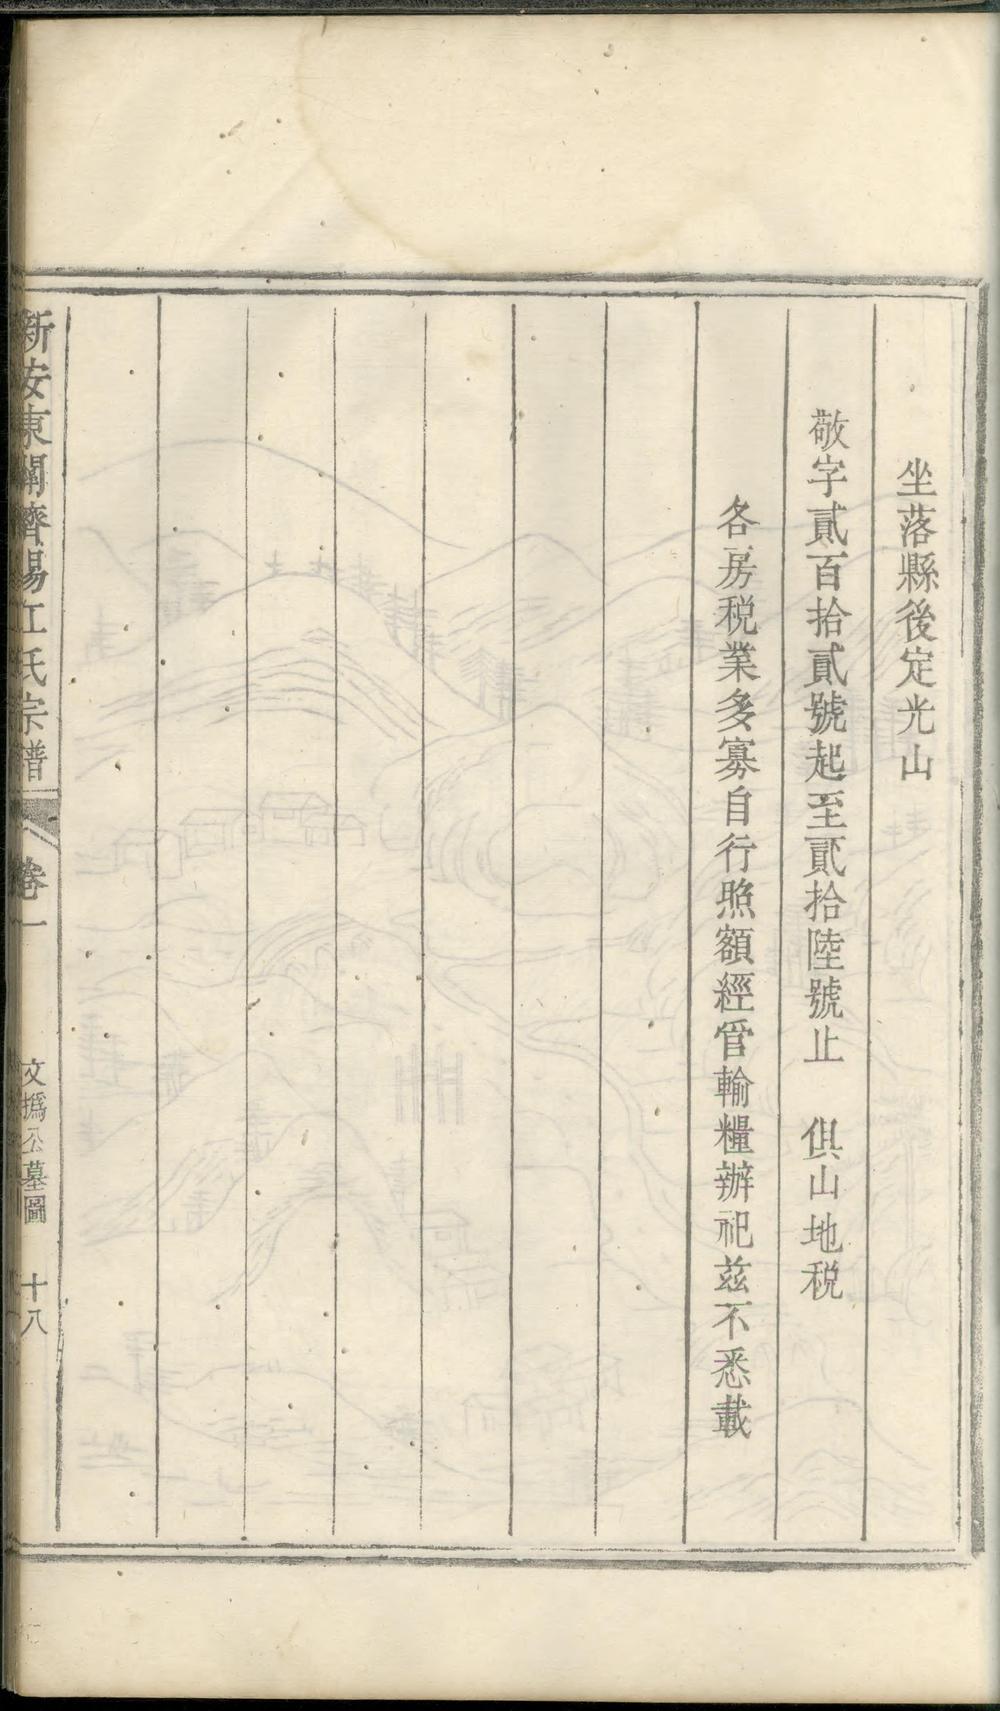 坐落縣後定光山
敬字貳百拾貳號起至貳拾陸號止　俱山地税
各房税業多寡自行照額經管輸糧辦祀茲不悉載
新安東關濟陽江氏宗譜　卷一　文撝公墓圖　十八